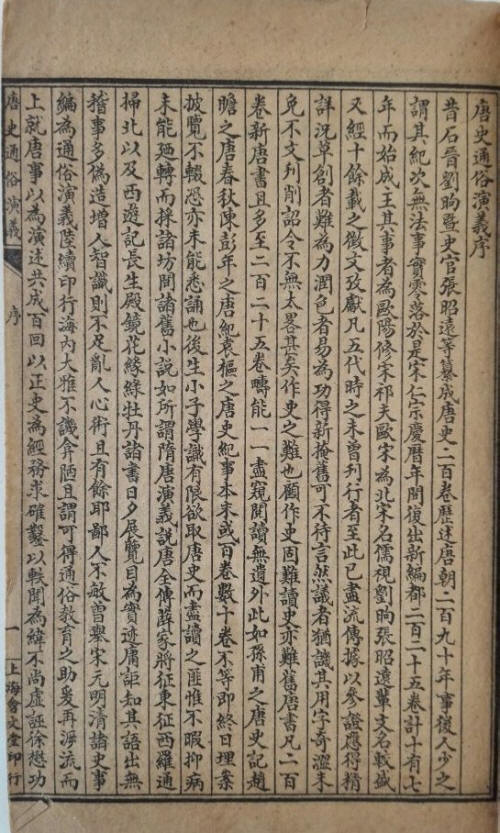 唐史通俗演義序
昔石晉劉昫暨史官張昭遠等纂成唐史二百卷歷述唐朝二百九十年事後人少之
謂其紀次無法事實零落於是宋仁宗慶曆年間復出新編都二百二十五卷計十有七
年而始成王其事者為歐陽修宋祁夫歐宋為北宋名儒視劉昫張昭遠輩文名較盛
又經十餘載之徵文攷獻凡五代時之未曾刊行者至此已盡流傳據以參證應得精
詳況草創者難為力潤色者易為功得新掩舊可不待言然議者猶譏其用字奇澀未
免不文刋削詔令不無太畧甚矣作史之難也顧作史固難讀史亦難舊唐書凡二百
卷新唐書且多至二百二十五卷疇能一一盡窺閱讀無遺外此如孫甫之唐史記趙
瞻之唐春秋陳彭年之唐紀袁樞之唐史紀事本末或百卷數十卷不等即終日埋案
披覽不輟恐亦未能悉誦也後生小子學識有限欲取唐史而盡讀之匪惟不暇抑病
未能廼轉而採諸坊間諸舊小說如所謂隋唐演義說唐全傳薛家將征東征西羅通
掃北以及西遊記長生殿鏡花緣綠牡丹諸書日夕展覽目為實迹庸詎知其語出無
稽事多偽造增人智識則不足亂人心術且有餘耶鄙人不敏曾舉宋元明清諸史事
編為通俗演義陸續印行海內大雅不譏弇陋且謂可得通俗教育之助爰再溯流而
上就唐事以為演述共成百回以正史為經務求確鑿以軼聞為緯不尚虛誣徐懋功
唐史通俗演義
序
一
上海會文堂印行